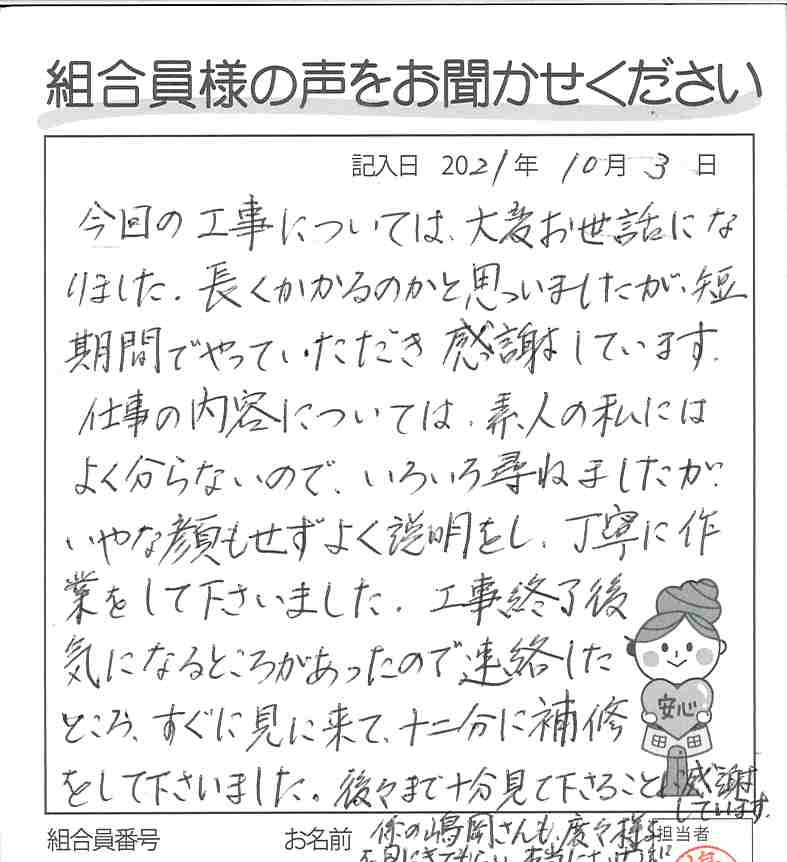 組合員様の声をお聞かせください
記入日 2021年 10月 3日
今回の工事については、大変お世話にな
りました。長くかかるのかと思いましたが、短
期間でやっていただき感謝しています。
仕事の内容については、素人の私には
よく分らないので、いろいろ尋ねましたが、
いやな顔もせずよく説明をし、丁寧に作
業をして下さいました。工事終了後
気になるところがあったので連絡した
ところ、すぐに見に来て、十二分に補修
をして下さいました。後々まで十分見て下さることに感謝
しています。
安心
組合員番号 お名前 係の嶋岡さんも、度々様子 担当者
を見にきてもらい、本当に